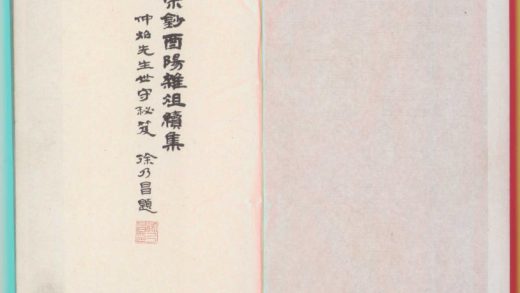 宋鈔酉陽雜俎續集
仲炤先生世守秘笈 徐乃昌題